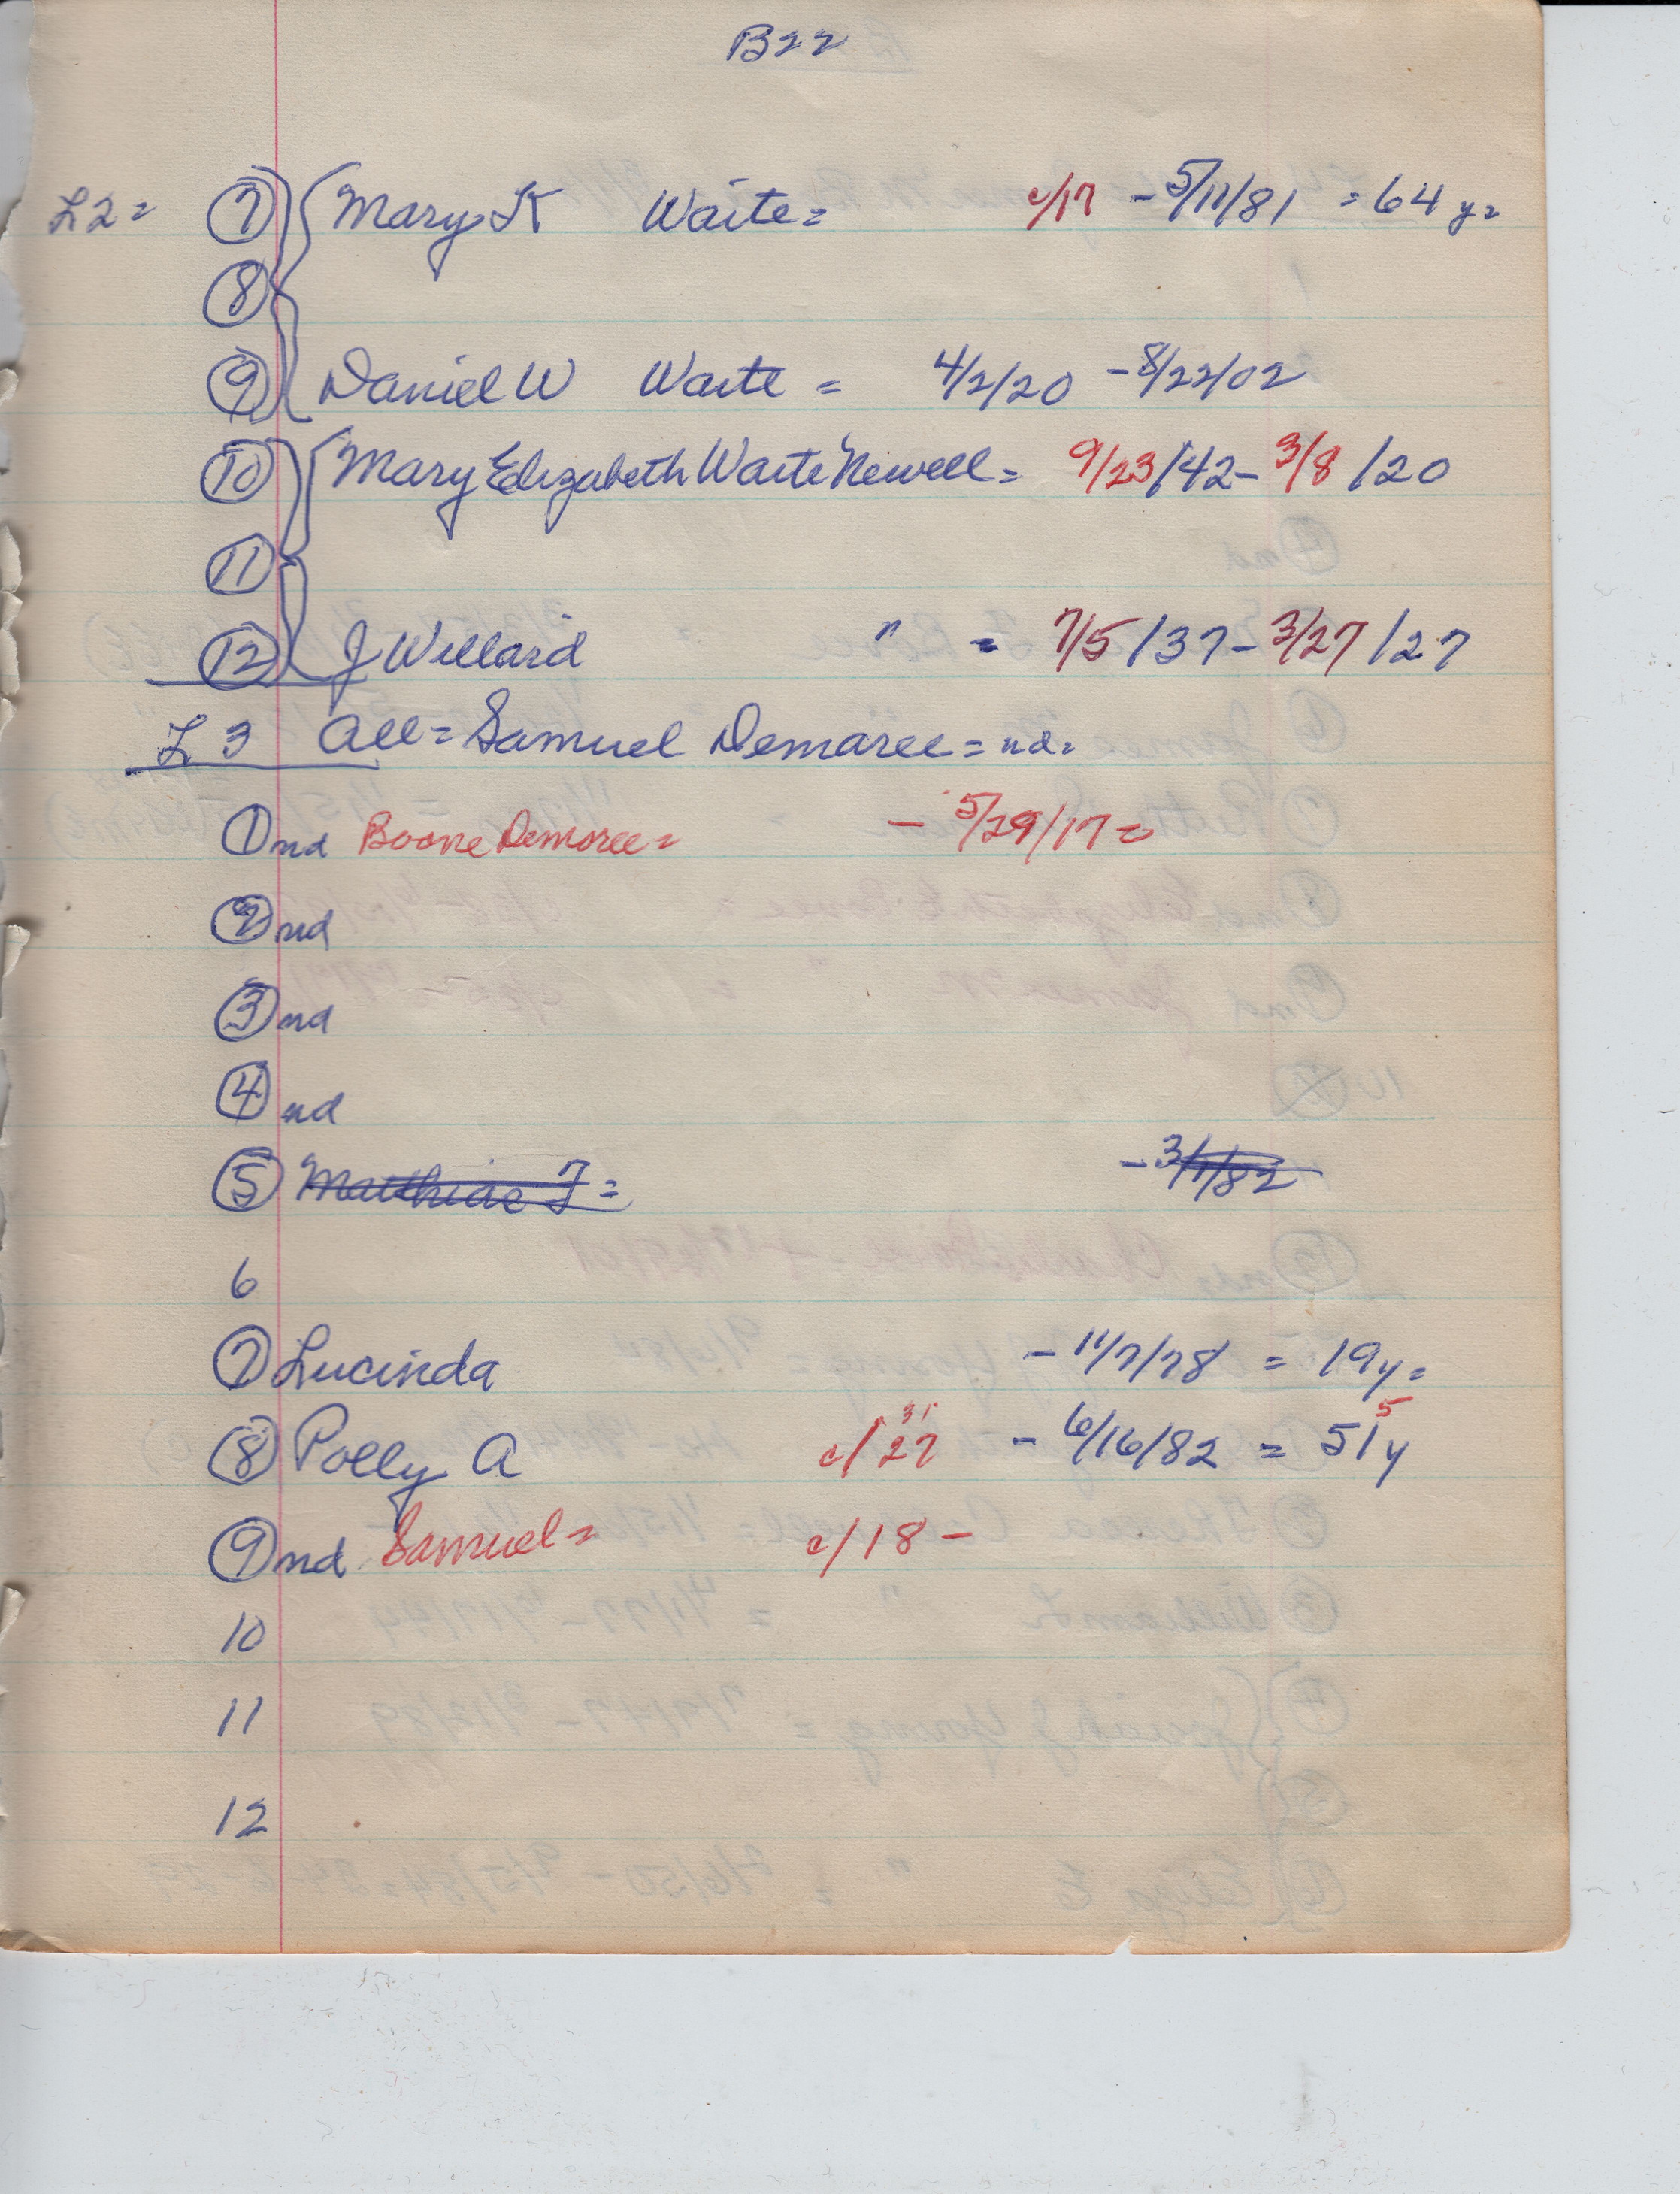 B22
L2= 7 Mary K Waite= c/17 - 5/11/81 = 64 y=
8
9 Daniel W Waite = 4/2/20 - 8/22/02
10 Mary Elizabeth Waite Newell= 9/23/42- 3/8/20
11
12 J Willard " = 7/5/37- 3/27/27
L 3 All= Samuel Demaree= nd=
1 nd Boone Demaree= - 5/29/17=
2 nd
3 nd
4 nd
5 Matthias J= - 3/1/82
6
7 Lucinda - 11/7/78 = 19y=
8 Polly A c/27 31 - 6/16/82 = 51y 5
9 nd Samuel= c/18 -
10
11
12